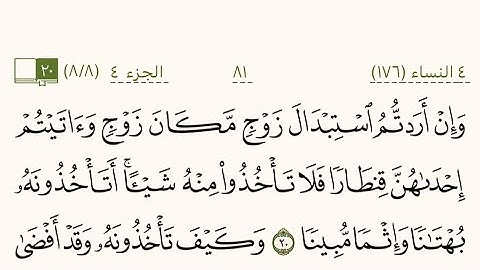 ٤ النساء (١٧٦) ٨١ الجزء ٤ (٨/٨) ٢٠
وَإِنْ أَرَدتُّمُ ٱسْتِبْدَالَ زَوْجٍ مَّكَانَ زَوْجٍ وَءَاتَيْتُمْ
إِحْدَىٰهُنَّ قِنطَارًا فَلَا تَأْخُذُوا۟ مِنْهُ شَيْـًٔا ۚ أَتَأْخُذُونَهُۥ
بُهْتَـٰنًا وَإِثْمًا مُّبِينًا ٢٠ وَكَيْفَ تَأْخُذُونَهُۥ وَقَدْ أَفْضَىٰ